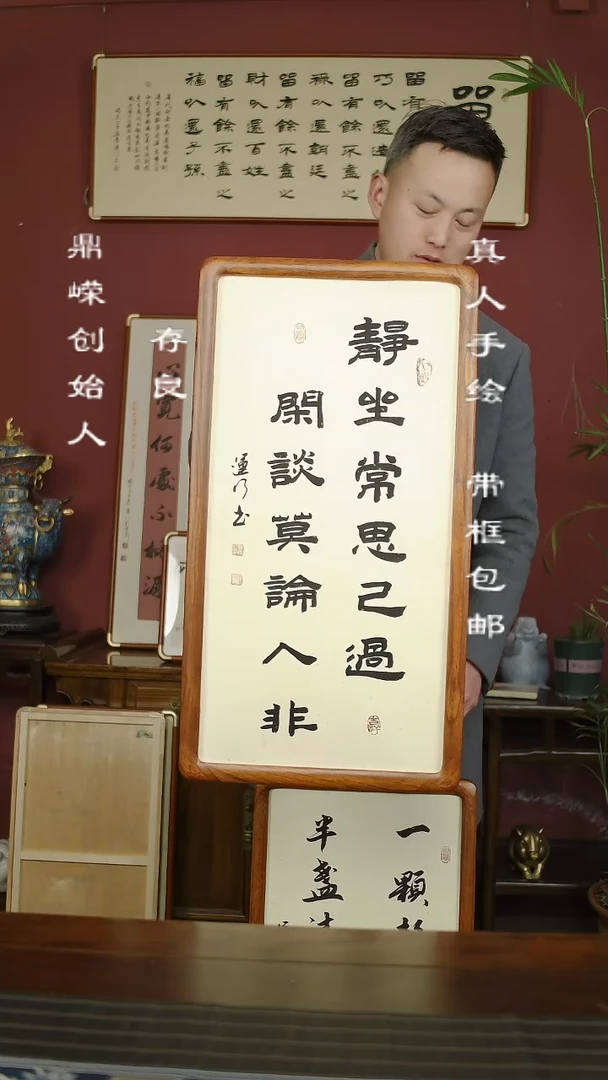 留
留有
巧以還造
留有餘不盡之
祿以還朝廷
留有餘不盡之
財以還百姓
留有餘不盡之
福以還子孫
真人手绘 带框包邮
鼎嵘创始人
存良
靜坐常思己過
閑談莫論人非
何處不桃源
一顆
半盞